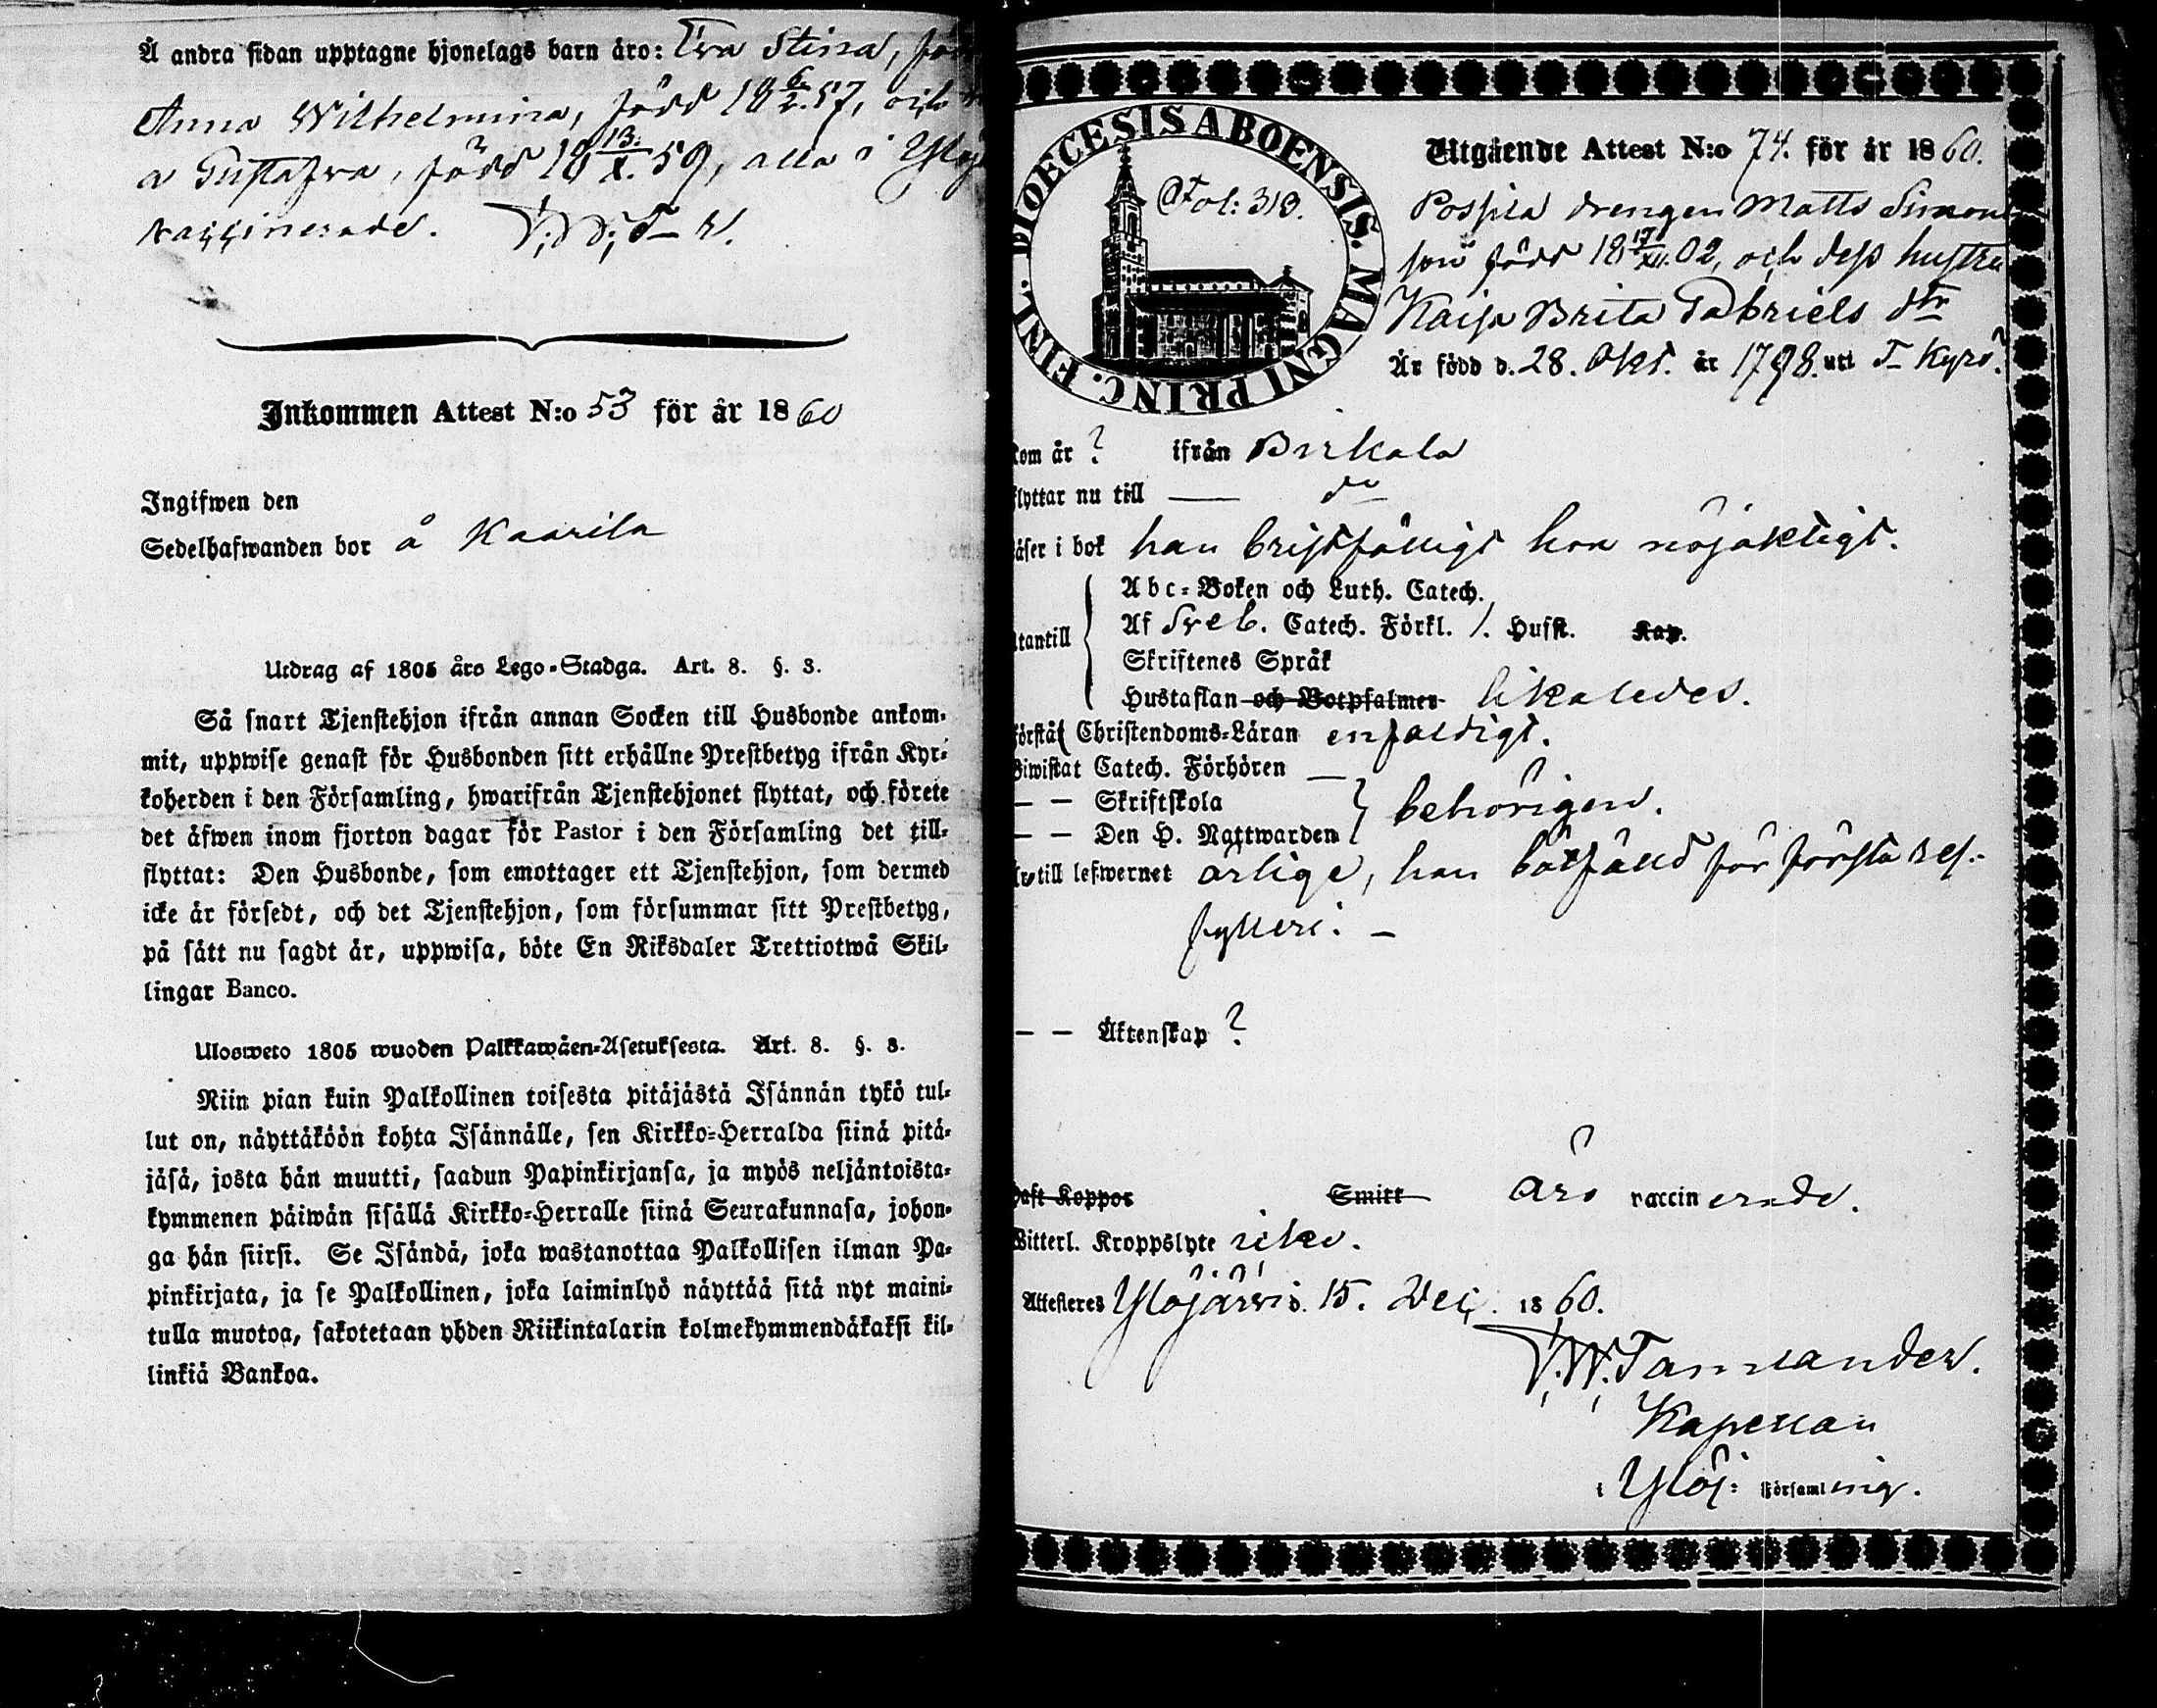 Å andra sidan upptagne hjonelags barn äro: Eva Stina,
Anna Wilhelmina, född 18 6/2. 57, och
a Gustafva, född 18 13./X. 59, alla i Ylöj
vaccinerade. V. W. T—r.
Inkommen Attest N:o 53 för år 1860
Ingifwen den
Sedelhafwanden bor å Kaarila
Utdrag af 1805 års Lego-Stadga. Art. 8. §. 3.
Så snart Tjenstehjon ifrån annan Socken till Husbonde ankom-
mit, uppwise genast för Husbonden sitt erhållne Prestbetyg ifrån Kyr-
koherden i den Församling, hwarifrån Tjenstehjonet flyttat, och förete
det äfwen inom fjorton dagar för Pastor i den Församling det till-
flyttat: Den Husbonde, som emottager ett Tjenstehjon, som dermed
icke är försedt, och det Tjenstehjon, som försummar sitt Prestbetyg,
på sätt nu sagdt är, uppwisa, böte En Riksdaler Trettiotwå Skil-
lingar Banco.
Ulosweto 1805 wuoden Palkkawäen-Asetuksesta. Art. 8. §. 3.
Niin pian kuin Palkollinen toisesta pitäjästä Isännän tykö tul-
lut on, näyttäköön kohta Isännälle, sen Kirkko-Herralda siinä pitä-
jäsä, josta hän muutti, saadun Papinkirjansa, ja myös neljäntoista-
kymmenen päiwän sisällä Kirkko-Herralle siinä Seurakunnasa, johon-
ga hän siirsi. Se Isändä, joka wastanottaa Palkollisen ilman Pa-
pinkirjata, ja se Palkollinen, joka laiminlyö näyttää sitä nyt maini-
tulla muotoa, sakotetaan yhden Riikintalarin kolmekymmendäkaksi kil-
linkiä Bankoa.
DIOECESIS ABOENSIS. MAGNI PRINC. FINL.
Fol: 318.
Utgående Attest N:o 74. för år 1860.
Pospila drengen Matts Simons
son född 18 17/XII. 02, och dess hustru
Kaisa Brita Gabriels dtr
Är född d. 28. Okt. år 1798. uti T. Kyro.
kom år ? ifrån Birkala
flyttar nu till — do
läser i bok han bristfälligt hon nöjaktigt.
Abc-Boken och Luth. Catech.
utantill Af Sveb. Catech. Förkl. 1. Hufst. Kap.
Skriftenes Språk
Hustaflan och Botpsalmer likaledes.
förstår Christendoms-Läran enfaldigt.
Biwistat Catech. Förhören —
— — Skriftskola
— — Den H. Nattwarden behörigen.
Är till lefwernet ärlige, han bötfälld för första res.
fylleri. —
— — Äktenskap ?
haft Koppor Smitt äro vaccinerade.
Witterl. Kroppslyte icke.
Attesteres Ylöjärvi d. 15. Dec. 1860.
V. W. Tamlander.
Kapellan
i Ylöj: Församling.